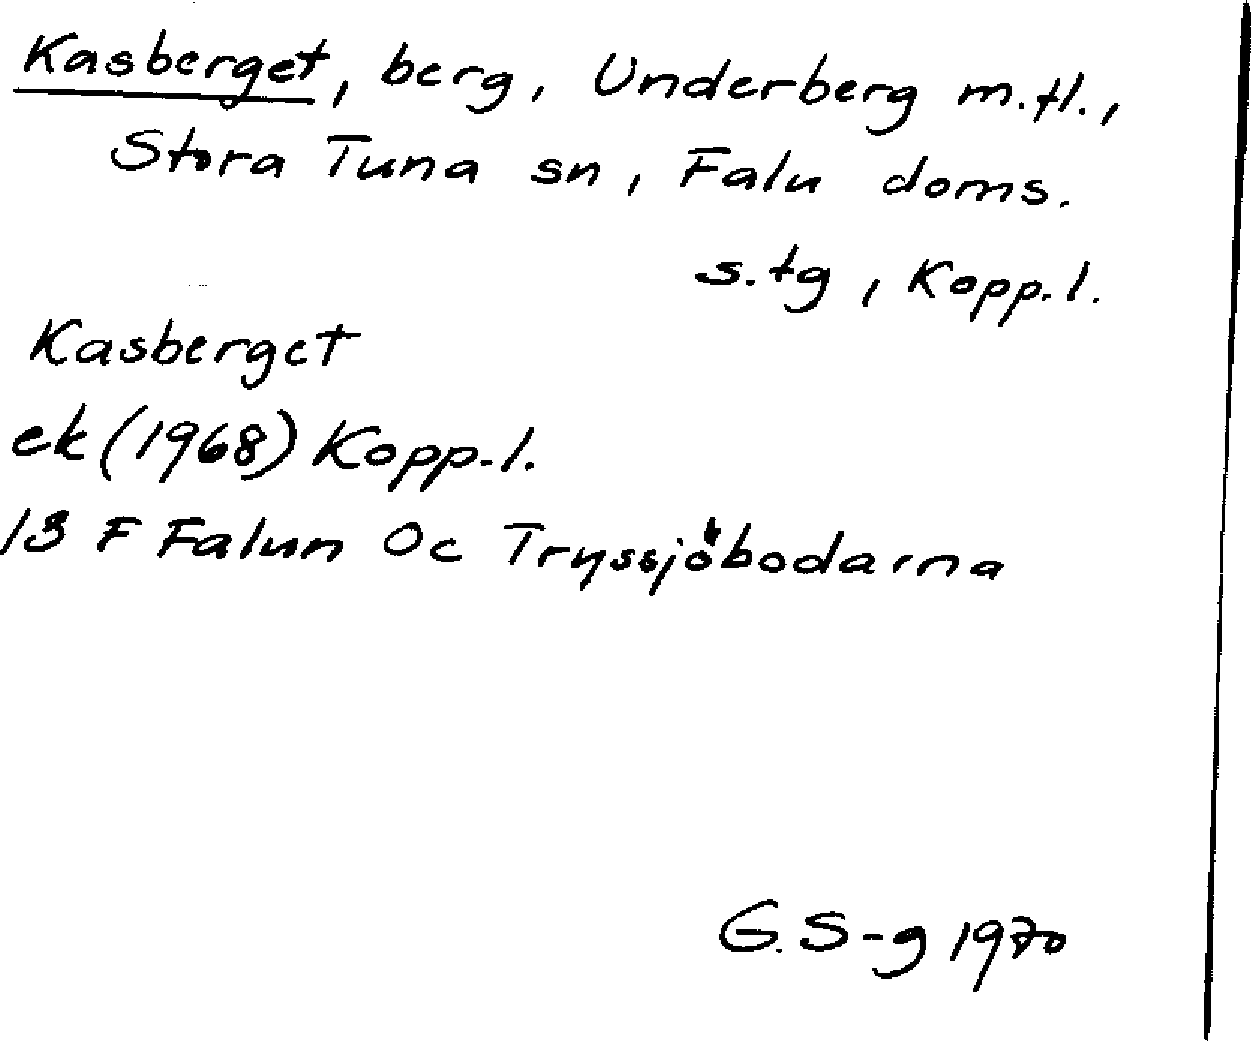 Kasberget, berg, Underberg m.fl.,
Stora Tuna sn, Falu doms.
s.tg, Kopp.l.
Kasberget
ek (1968) Kopp.l.
13 F Falun Oc Tryssjöbodarna
G.S-g 1970